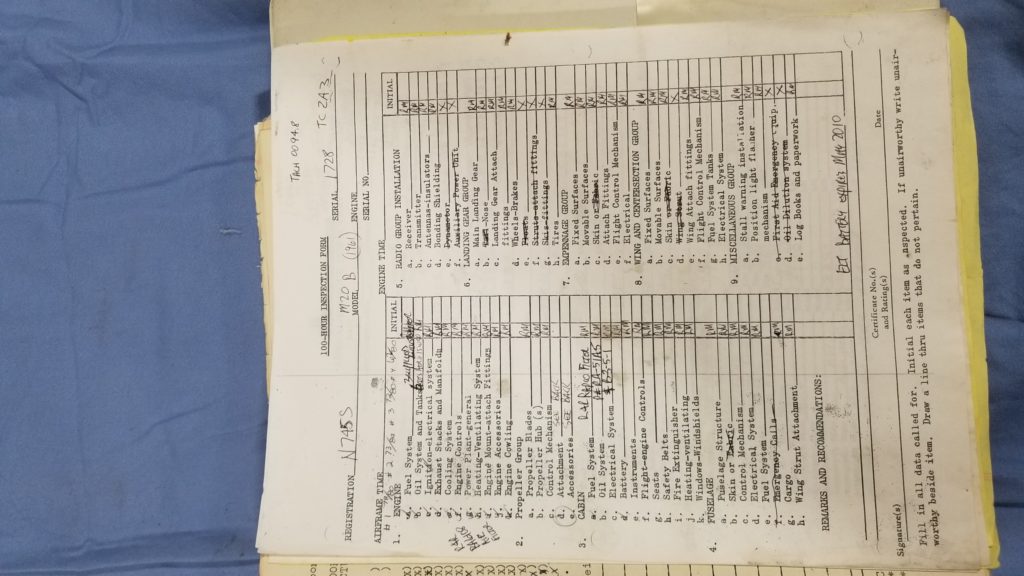 TACH 0094.8
100-HOUR INSPECTION FORM
REGISTRATION N745S MODEL M20 B (1961) SERIAL 1728 TC 2A3
ENGINE SERIAL NO.
AIRFRAME TIME ENGINE TIME
INITIAL
1. ENGINE
a. Fuel System
b. Oil System and Tank
c. Ignition-electrical system
d. Exhaust Stacks and Manifolds
e. Cooling System
f. Engine Controls
g. Power Plant-general
h. Heating-Ventilating System
i. Engine Mount-attach Fittings
j. Engine Accessories
k. Engine Cowling
2. Propeller Group
a. Propeller Blades
b. Propeller Hub (s)
c. Control Mechanism
d. Attachment SEE BACK
e. Accessories SEE BACK
3. CABIN
a. Fuel System
b. Oil System
c. Electrical System
d. Battery
e. Instruments
f. Flight-engine Controls
g. Seats
h. Safety Belts
i. Fire Extinguisher
j. Heating-ventilating
k. Windows-Windshields
4. FUSELAGE
a. Fuselage Structure
b. Skin or Fabric
c. Control Mechanism
d. Electrical System
e. Fuel System
f. Emergency Calls
g. Cargo
h. Wing Strut Attachment
INITIAL
5. RADIO GROUP INSTALLATION
a. Receiver
b. Transmitter
c. Antennas-insulators
d. Bonding Shielding
e. Dynamotor
f. Auxiliary Power Unit
6. LANDING GEAR GROUP
a. Main Landing Gear
b. Nose
c. Landing Gear Attach
fittings
d. Wheel-Brakes
e. Floats
f. Struts-attach fittings
g. Skis-fittings
h. Tires
7. EMPENNAGE GROUP
a. Fixed Surfaces
b. Movable Surfaces
c. Skin or Fabric
d. Attach Fittings
e. Flight Control Mechanism
f. Electrical
8. WING AND CENTERSECTION GROUP
a. Fixed Surfaces
b. Movable Surfaces
c. Skin or Fabric
d. Wing Strut
e. Wing Attach fittings
f. Flight Control Mechanism
g. Fuel System Tanks
h. Electrical System
9. MISCELLANEOUS GROUP
a. Stall warning installation
b. Position light flasher
mechanism
c. First Aid Emergency Equip.
d. Oil Dilution System
e. Log Books and paperwork
REMARKS AND RECOMMENDATIONS:
ELT BATTERY EXPIRES MAY 2010
Signature(s) Certificate No.(s) Date
and Rating(s)
Fill in all data called for. Initial each item as inspected. If unairworthy write unair-
worthy beside item. Draw a line thru items that do not pertain.